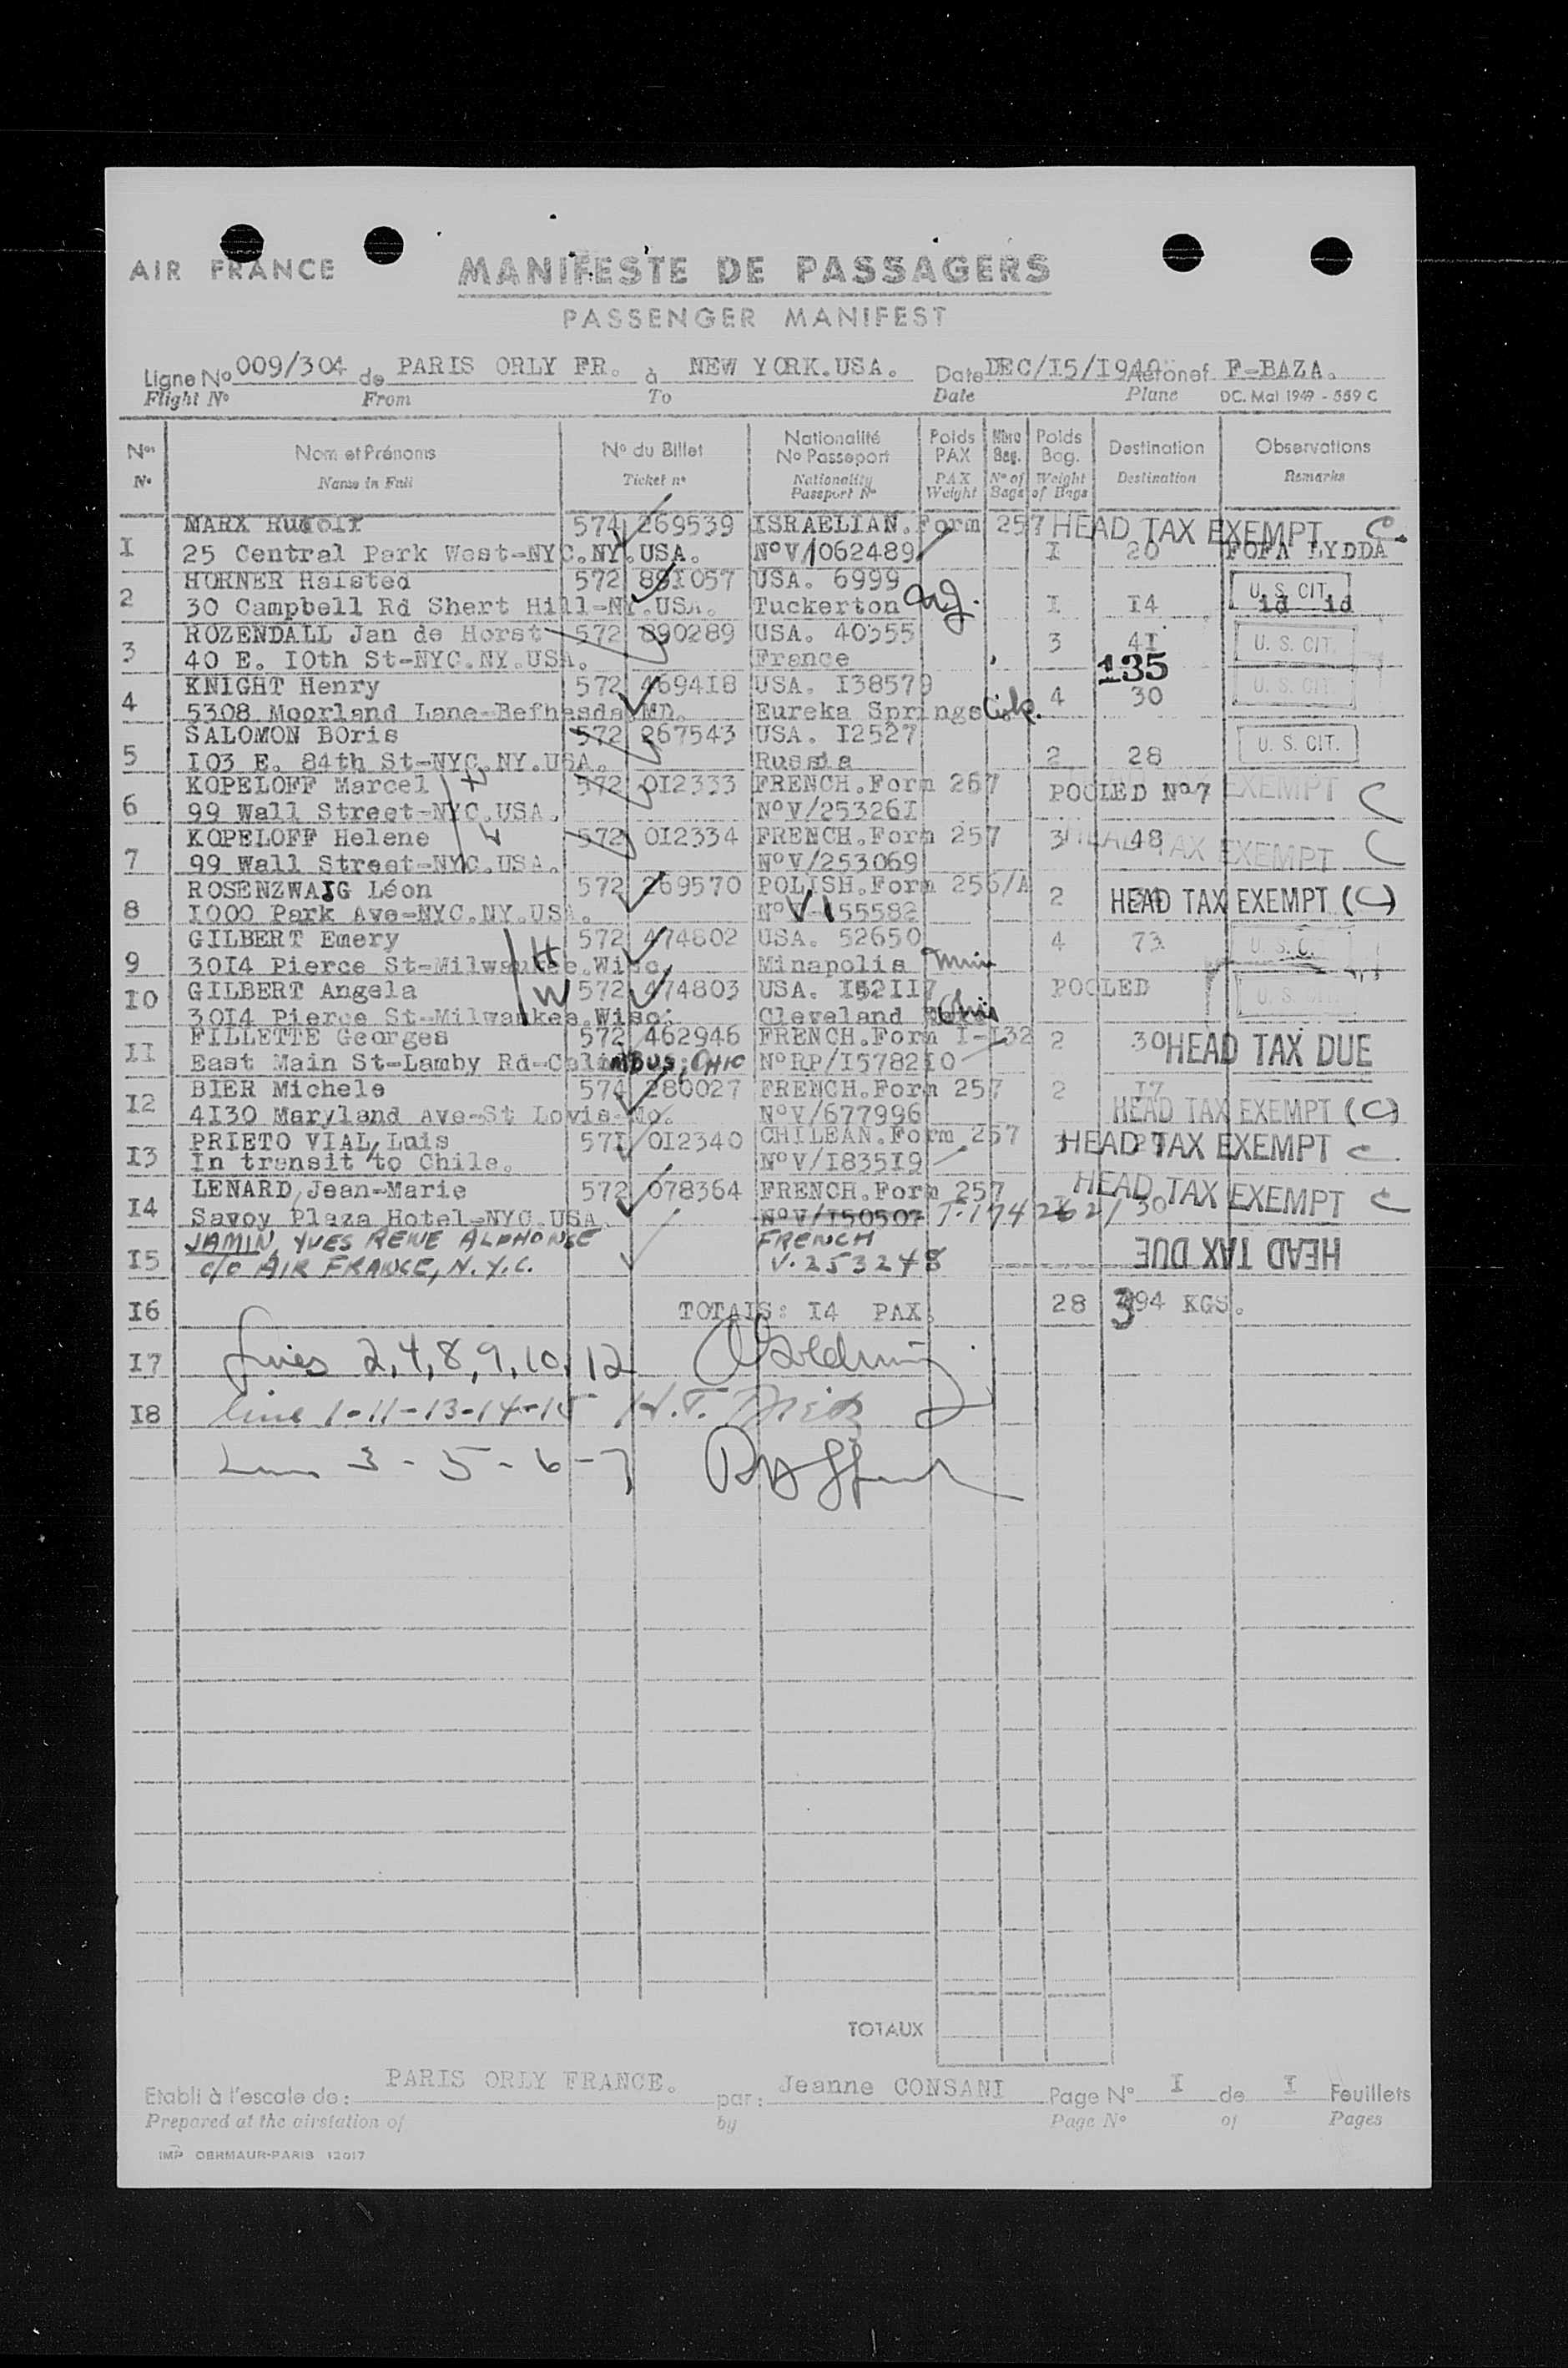 AIR FRANCE
MANIFESTE DE PASSAGERS
PASSENGER MANIFEST
Ligne No 009/304 de PARIS ORLY FR. à NEW YORK.USA. Date DEC/I5/I949 Aéronef F-BAZA.
Flight No From To Date Plane DC. Mai 1949 - 559 C
Nos Nom et Prénoms No du Billet Nationalité No Passeport Poids PAX Nbre Bag. Poids Bag. Destination Observations
No Name in Full Ticket no Nationality Passport No PAX Weight No of Bags Weight of Bags Destination Remarks
MARX Rudolf 574 269539 ISRAELIAN.Form 257 HEAD TAX EXEMPT C.
I 25 Central Park West-NYC.NY.USA. NoV/062489 I 20 FOFA LYDDA
HORNER Halsted 572 891057 USA. 6999 U. S. CIT.
2 30 Campbell Rd Shert Hill-NY.USA. Tuckerton I I4 id id
ROZENDALL Jan de Horst 572 890289 USA. 40355 3 4I U. S. CIT.
3 40 E. I0th St-NYC.NY.USA. France 135
KNIGHT Henry 572 4694I8 USA. I38579 U. S. CIT.
4 5308 Moorland Lane-Bethesda MD. Eureka Springs 4 30
SALOMON BOris 572 267543 USA. I2527 U. S. CIT.
5 I03 E. 84th St-NYC.NY.USA. Russia 2 28
KOPELOFF Marcel H 572 0I2333 FRENCH.Form 267 POOLED No7 EXEMPT C
6 99 Wall Street-NYC.USA. NoV/25326I
KOPELOFF Helene W 572 0I2334 FRENCH.Form 257 3 48 HEAD TAX EXEMPT C
7 99 Wall Street-NYC.USA. NoV/253069
ROSENZWAIG Léon 572 269570 POLISH.Form 256/A 2 HEAD TAX EXEMPT (C)
8 I000 Park Ave-NYC.NY.USA. NoV-I55582
GILBERT Emery H 572 474802 USA. 52650 4 73 U. S. C.
9 30I4 Pierce St-Milwaukee.Wisc. Minapolis Minn
I0 GILBERT Angela W 572 474803 USA. I52II7 POOLED U. S. CIT.
30I4 Pierce St-Milwaukee.Wisc. Cleveland Ohio
FILLETTE Georges 572 462946 FRENCH.Form I-I32 2 30 HEAD TAX DUE
II East Main St-Lamby Rd-Columbus; OHIO NoRP/I5782I0
BIER Michele 574 280027 FRENCH.Form 257 2 I7
I2 4I30 Maryland Ave-St Lovis-Mo. NoV/677996 HEAD TAX EXEMPT (C)
PRIETO VIAL, Luis 57I 0I2340 CHILEAN.Form 257 HEAD TAX EXEMPT C
I3 In transit to Chile. NoV/I835I9
LENARD, Jean-Marie 572 078364 FRENCH.Form 257 HEAD TAX EXEMPT C
I4 Savoy Plaza Hotel-NYC.USA. NoV/I50507 30
JAMIN, YVES RENE ALPHONSE FRENCH HEAD TAX DUE
I5 c/o AIR FRANCE, N.Y.C. V.253248
I6 TOTAIS: I4 PAX. 28 394 KGS.
I7 Lines 2,4,8,9,10,12
I8 Line 1-11-13-14-15
3-5-6-7
TOTAUX
Etabli à l'escale de: PARIS ORLY FRANCE. par: Jeanne CONSANI Page No I de I Feuillets
Prepared at the airstation of by Page No of Pages
IMP DERMAUR-PARIS 12017